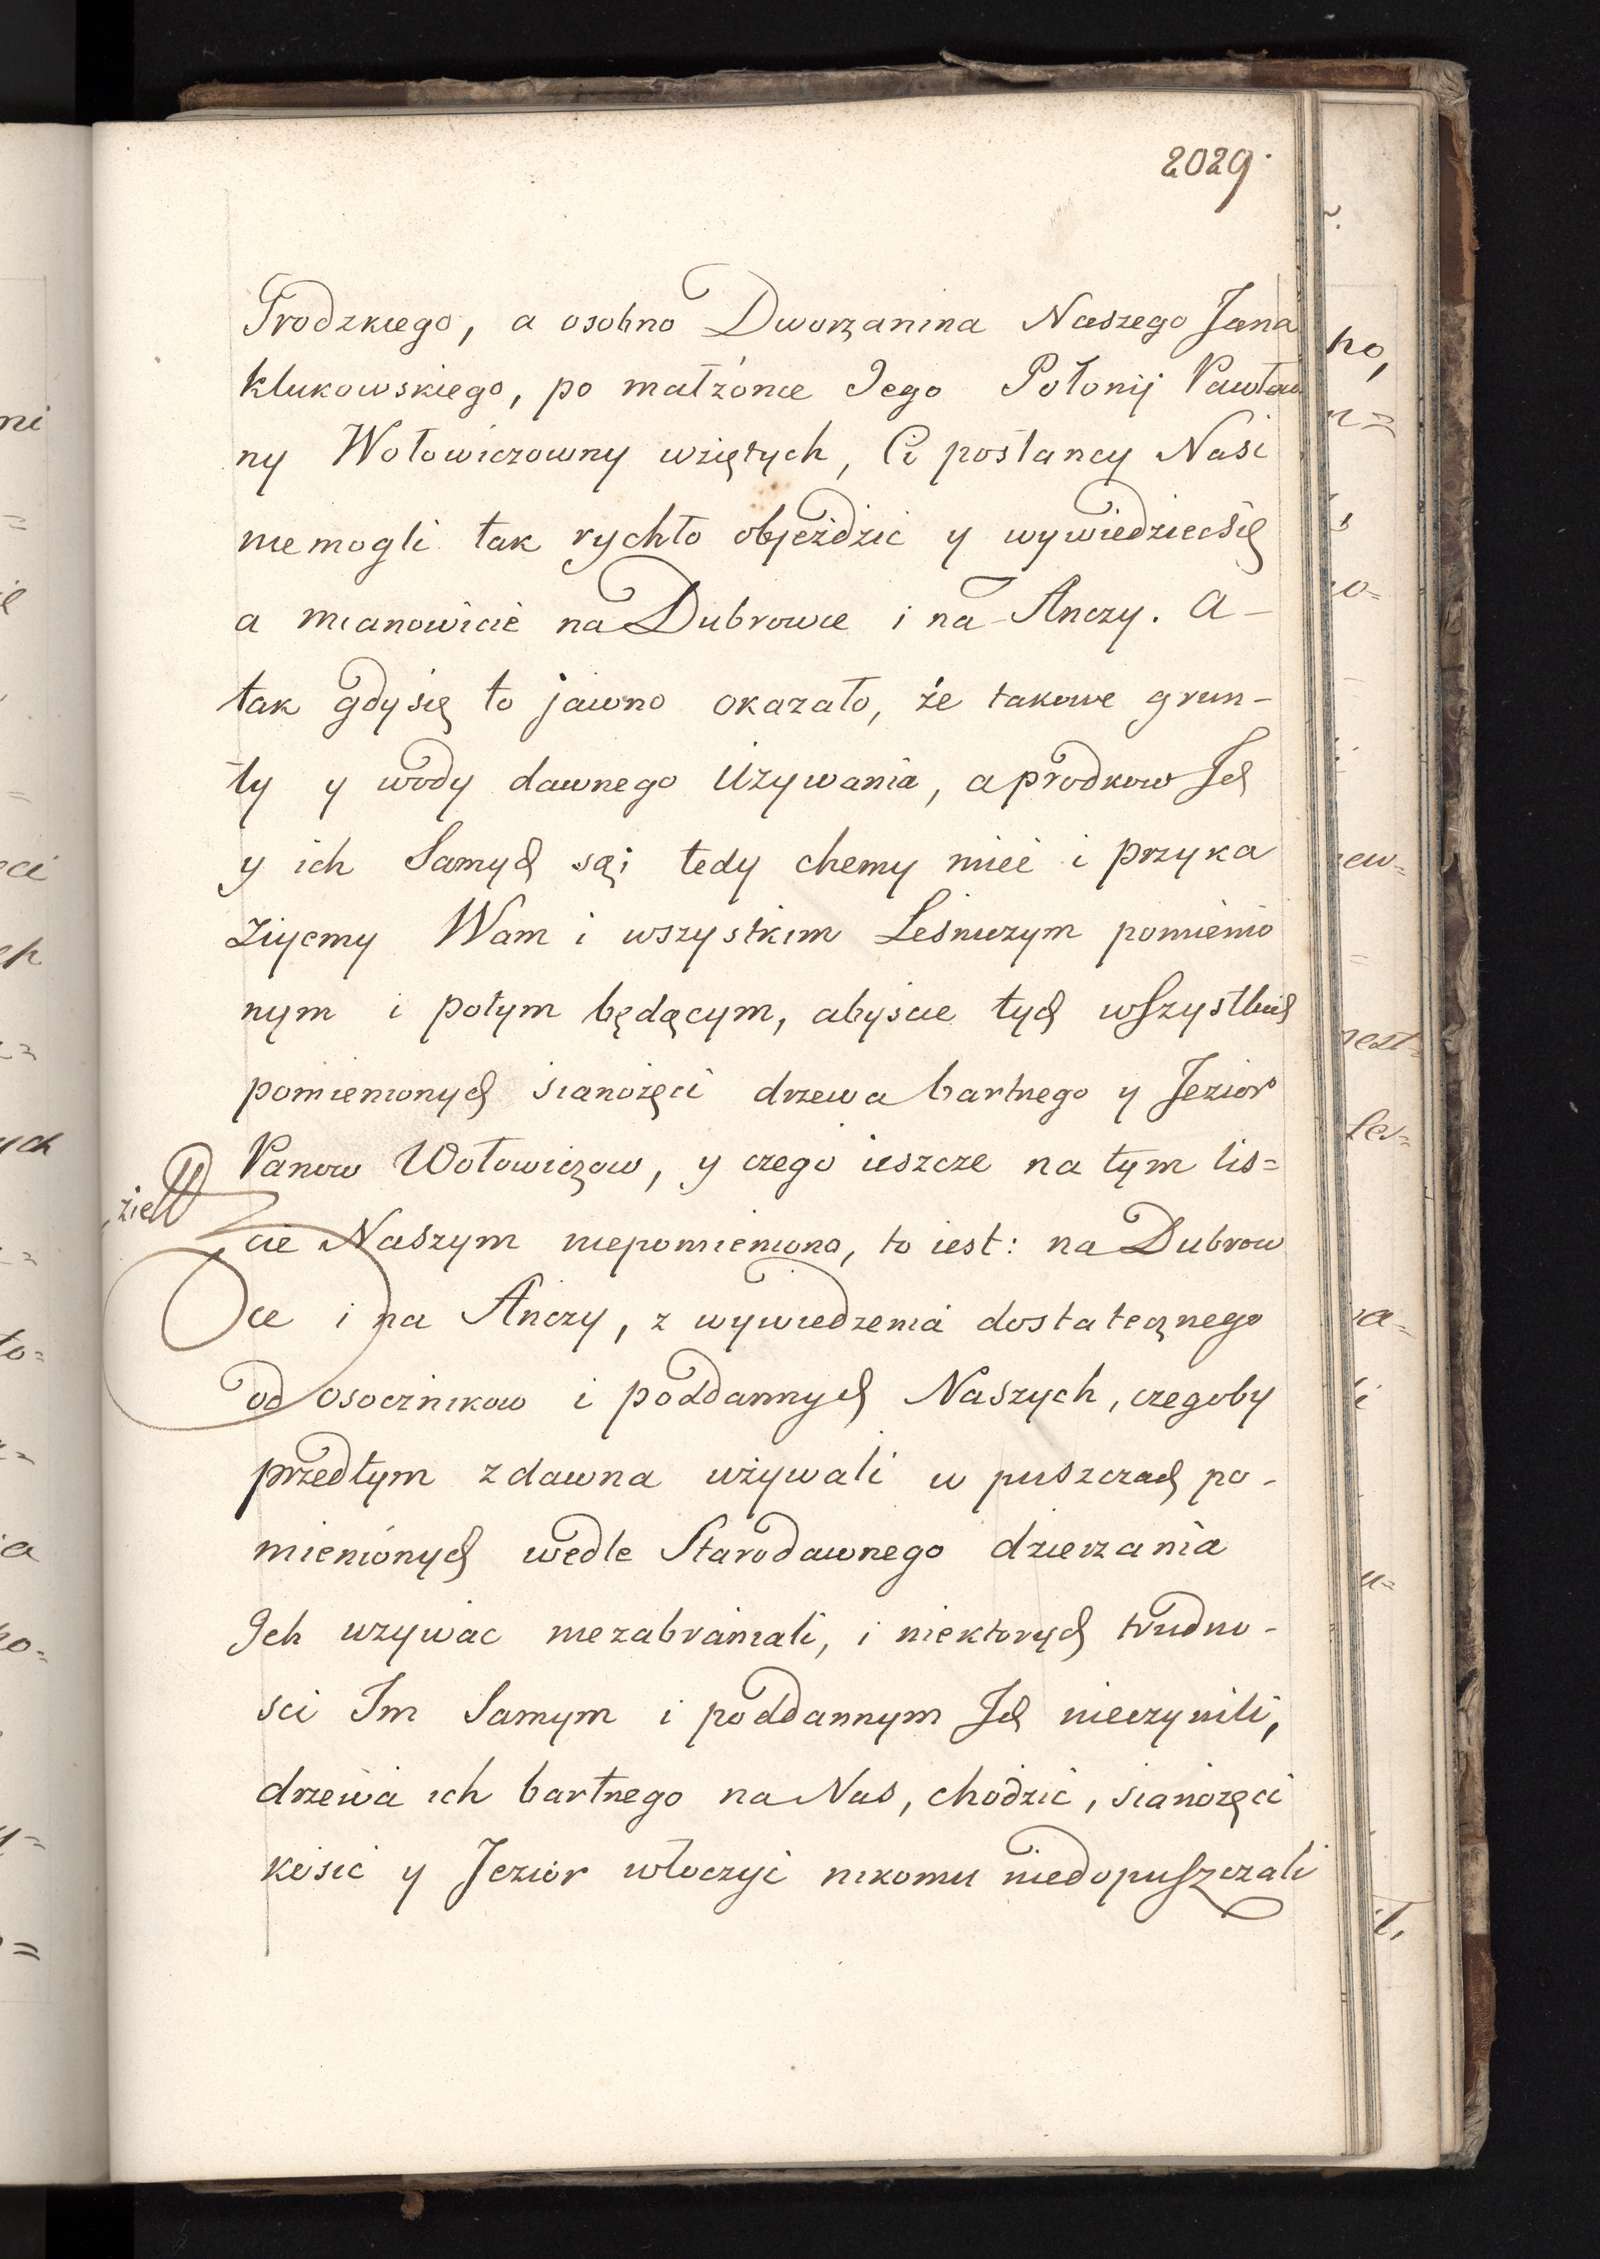 2029.
Trodzkiego, a osobno Dworzanina Naszego Jana
Klukowskiego, po małżonce Jego Połonij Pawłow
ny Wołowiczowny wziętych, Ci posłancy Nasi
niemogli tak rychło objeżdzić y wywiedziećsię
a mianowicie na Dubrowce i na Anczy. A-
tak gdysię to jawno okazało, że takowe grun-
ty y wody dawnego używania, aprodkow Ich
y ich Samych są; tedy chemy mieć i przyka
zuyemy Wam i wszystkim Leśniczym pomienio
nym i potym będącym, abyście tych wszystkich
pomienionych sianożęci drzewa bartnego y Jezior
Panow Wołowiczow, y czego ieszcze na tym lis=
cie Naszym niepomieniono, to iest: na Dubrow
ce i na Anczy, z wywiedzenia dostatecznego
od osocznikow i poddannych Naszych, czegoby
przedtym zdawna używali w puszczach po-
mienionych wedle Starodawnego dzierzania
Ich uzywac niezabraniali, i niektorych trudno-
sci Im Samym i poddannym Ich nieczynili,
drzewa ich bartnego na Nas, chodzić, sianożęci
kosić y Jezior włoczyć nikomu niedopuszczali